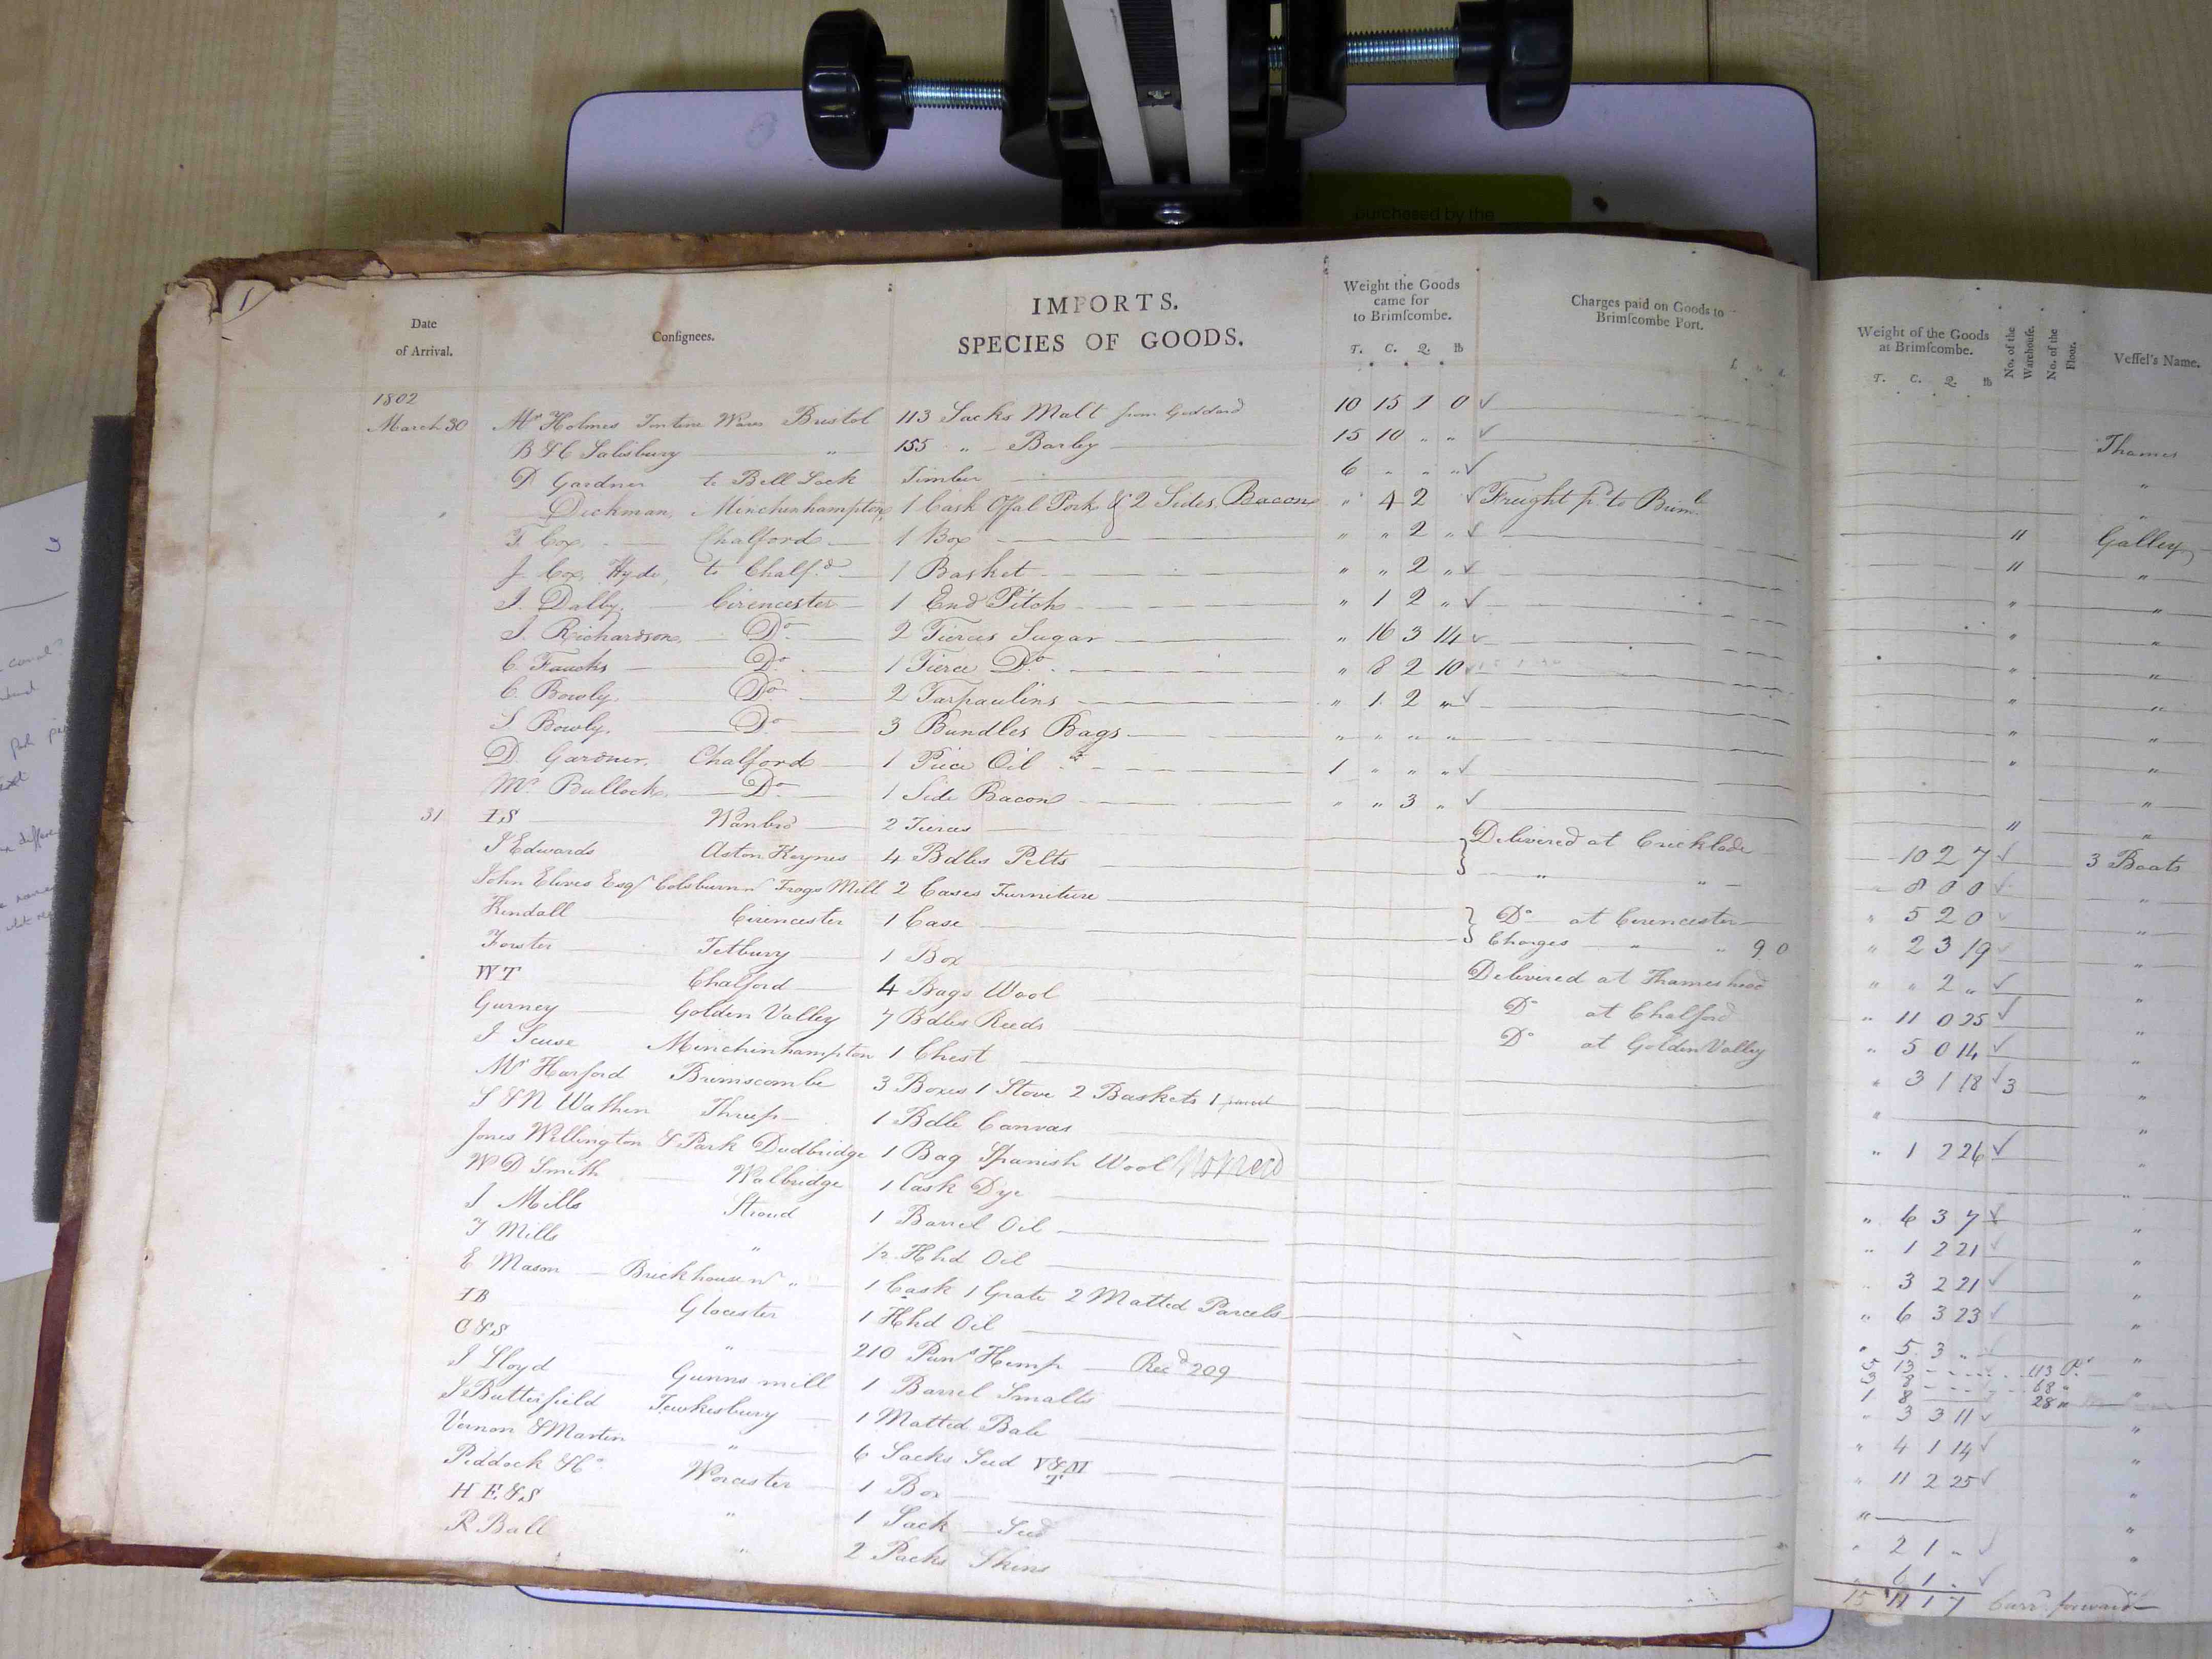 purchased by the
1
Date of Arrival.
Consignees.
IMPORTS.
SPECIES OF GOODS.
Weight the Goods came for to Brimſcombe.
T. C. Q. lb
Charges paid on Goods to Brimſcombe Port.
Weight of the Goods at Brimſcombe.
T. C. Q. lb
No. of the Warehouſe.
No. of the Floor.
Veſſel's Name.
1802
March 30 Mr Holmes Tontine Bristol 113 Sacks Malt from Goddard 10 15 1 0 ✓ Thames
B & C Salisbury " 155 " Barley 15 10 " " ✓ "
D Gardner to Bell Lock Timber 6 " " " ✓ "
Dickman, Minchinhampton, 1 Cask Offal Pork & 2 Sides Bacon " 4 2 ✓ Freight pd to Brim " Galley
T. Cox, Chalford 1 Box " " 2 " ✓ " "
J. Cox, Hyde, to Chalfd 1 Basket " " 2 " ✓ " "
I. Dalby, Cirencester 1 End Pitch " 1 2 " ✓ " "
I. Richardson, Do 2 Tierces Sugar " 16 3 14 ✓ " "
C. Do 1 Tierce Do " 8 2 10 ✓ " "
C. Bowly, Do 2 Tarpaulins " 1 2 " ✓ " "
S Bowly, Do 3 Bundles Bags " " " " " "
D Gardner, Chalford 1 Piece Oil 1 " " " ✓ "
Mr Bullock, Do 1 Side Bacon " " 3 " ✓ " "
31 IS Wanbro 2 Tierces Delivered at Cricklade 10 2 7 ✓ 3 Boats
I Edwards Aston Keynes 4 Bdles Pelts " " 8 0 0 ✓ "
John Elwes Esqr Colsburn Frogs Mill 2 Cases Furniture " 5 2 0 ✓ "
Kendall Cirencester 1 Case Do at Cirencester " 2 3 19 ✓ "
Forster Tetbury 1 Box Charges " " 9 0 " " 2 " ✓ "
WT Chalford 4 Bags Wool Delivered at Thames head " 11 0 25 ✓ "
Gurney Golden Valley 7 Bdles Reeds Do at Chalford " 5 0 14 ✓ "
I Minchinhampton 1 Chest Do at Golden Valley " 3 1 18 ✓ 3 "
Mr Harford Brimscombe 3 Boxes 1 Stove 2 Baskets 1 parcel " "
S & N Wathen Thrup 1 Bdle Canvas " 1 2 26 ✓ "
Jones Wellington & Park Dudbridge 1 Bag Spanish Wool "
W D Smith Walbridge 1 Cask Dye " 6 3 7 ✓ "
I Mills Stroud 1 Barrel Oil " 1 2 21 ✓ "
T Mills " 1/2 Hhd Oil 3 2 21 ✓ "
E Mason Brickhouse " 1 Cask 1 Grate 2 Matted Parcels " 6 3 23 ✓ "
IB Glocester 1 Hhd Oil " 5 3 " ✓ "
C&S " 210 Hemp Recd 209 5 13 113
3 8 68 "
1 8 28 " "
I Lloyd Gunns mill 1 Barrel Smalts " 3 3 11 ✓ "
I Butterfield Tewkesbury 1 Matted Bale " 4 1 14 ✓ "
Vernon & Martin " 6 Sacks Seed V&M T " 11 2 25 ✓ "
Piddock & Co Worcester 1 Box " "
H E & S " 1 Sack Seed " 2 1 " ✓ "
R Ball " 2 Packs Skins " 6 1 " ✓ "
15 11 1 7 Carrd forward